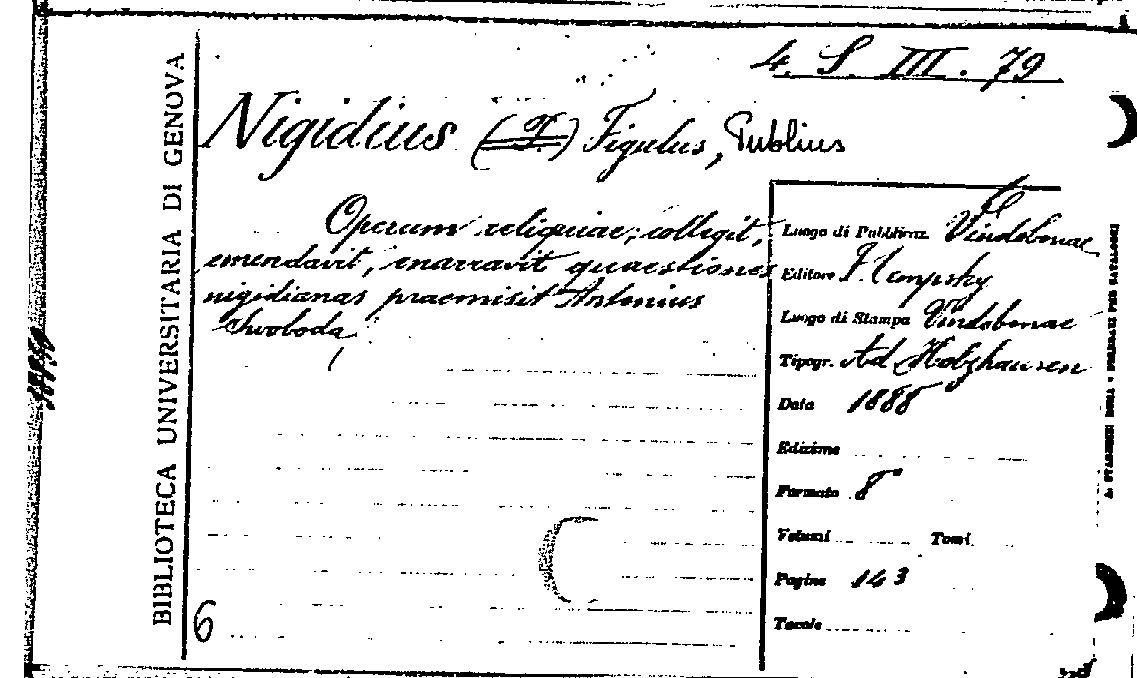 4. S. III. 79
BIBLIOTECA UNIVERSITARIA DI GENOVA
Nigidius (P.) Figulus, Publius
Operum reliquiae; collegit,
emendavit, enarravit quaestiones
nigidianas praemisit Antonius
Swoboda,
Luogo di Pubblicaz. Vindobonae
Editore F. Tempsky
Luogo di Stampa Vindobonae
Tipogr. Ad Holzhausen
Data 1888
Edizione
Formato 8°
Volumi Tomi
Pagine 143
Tavole
6